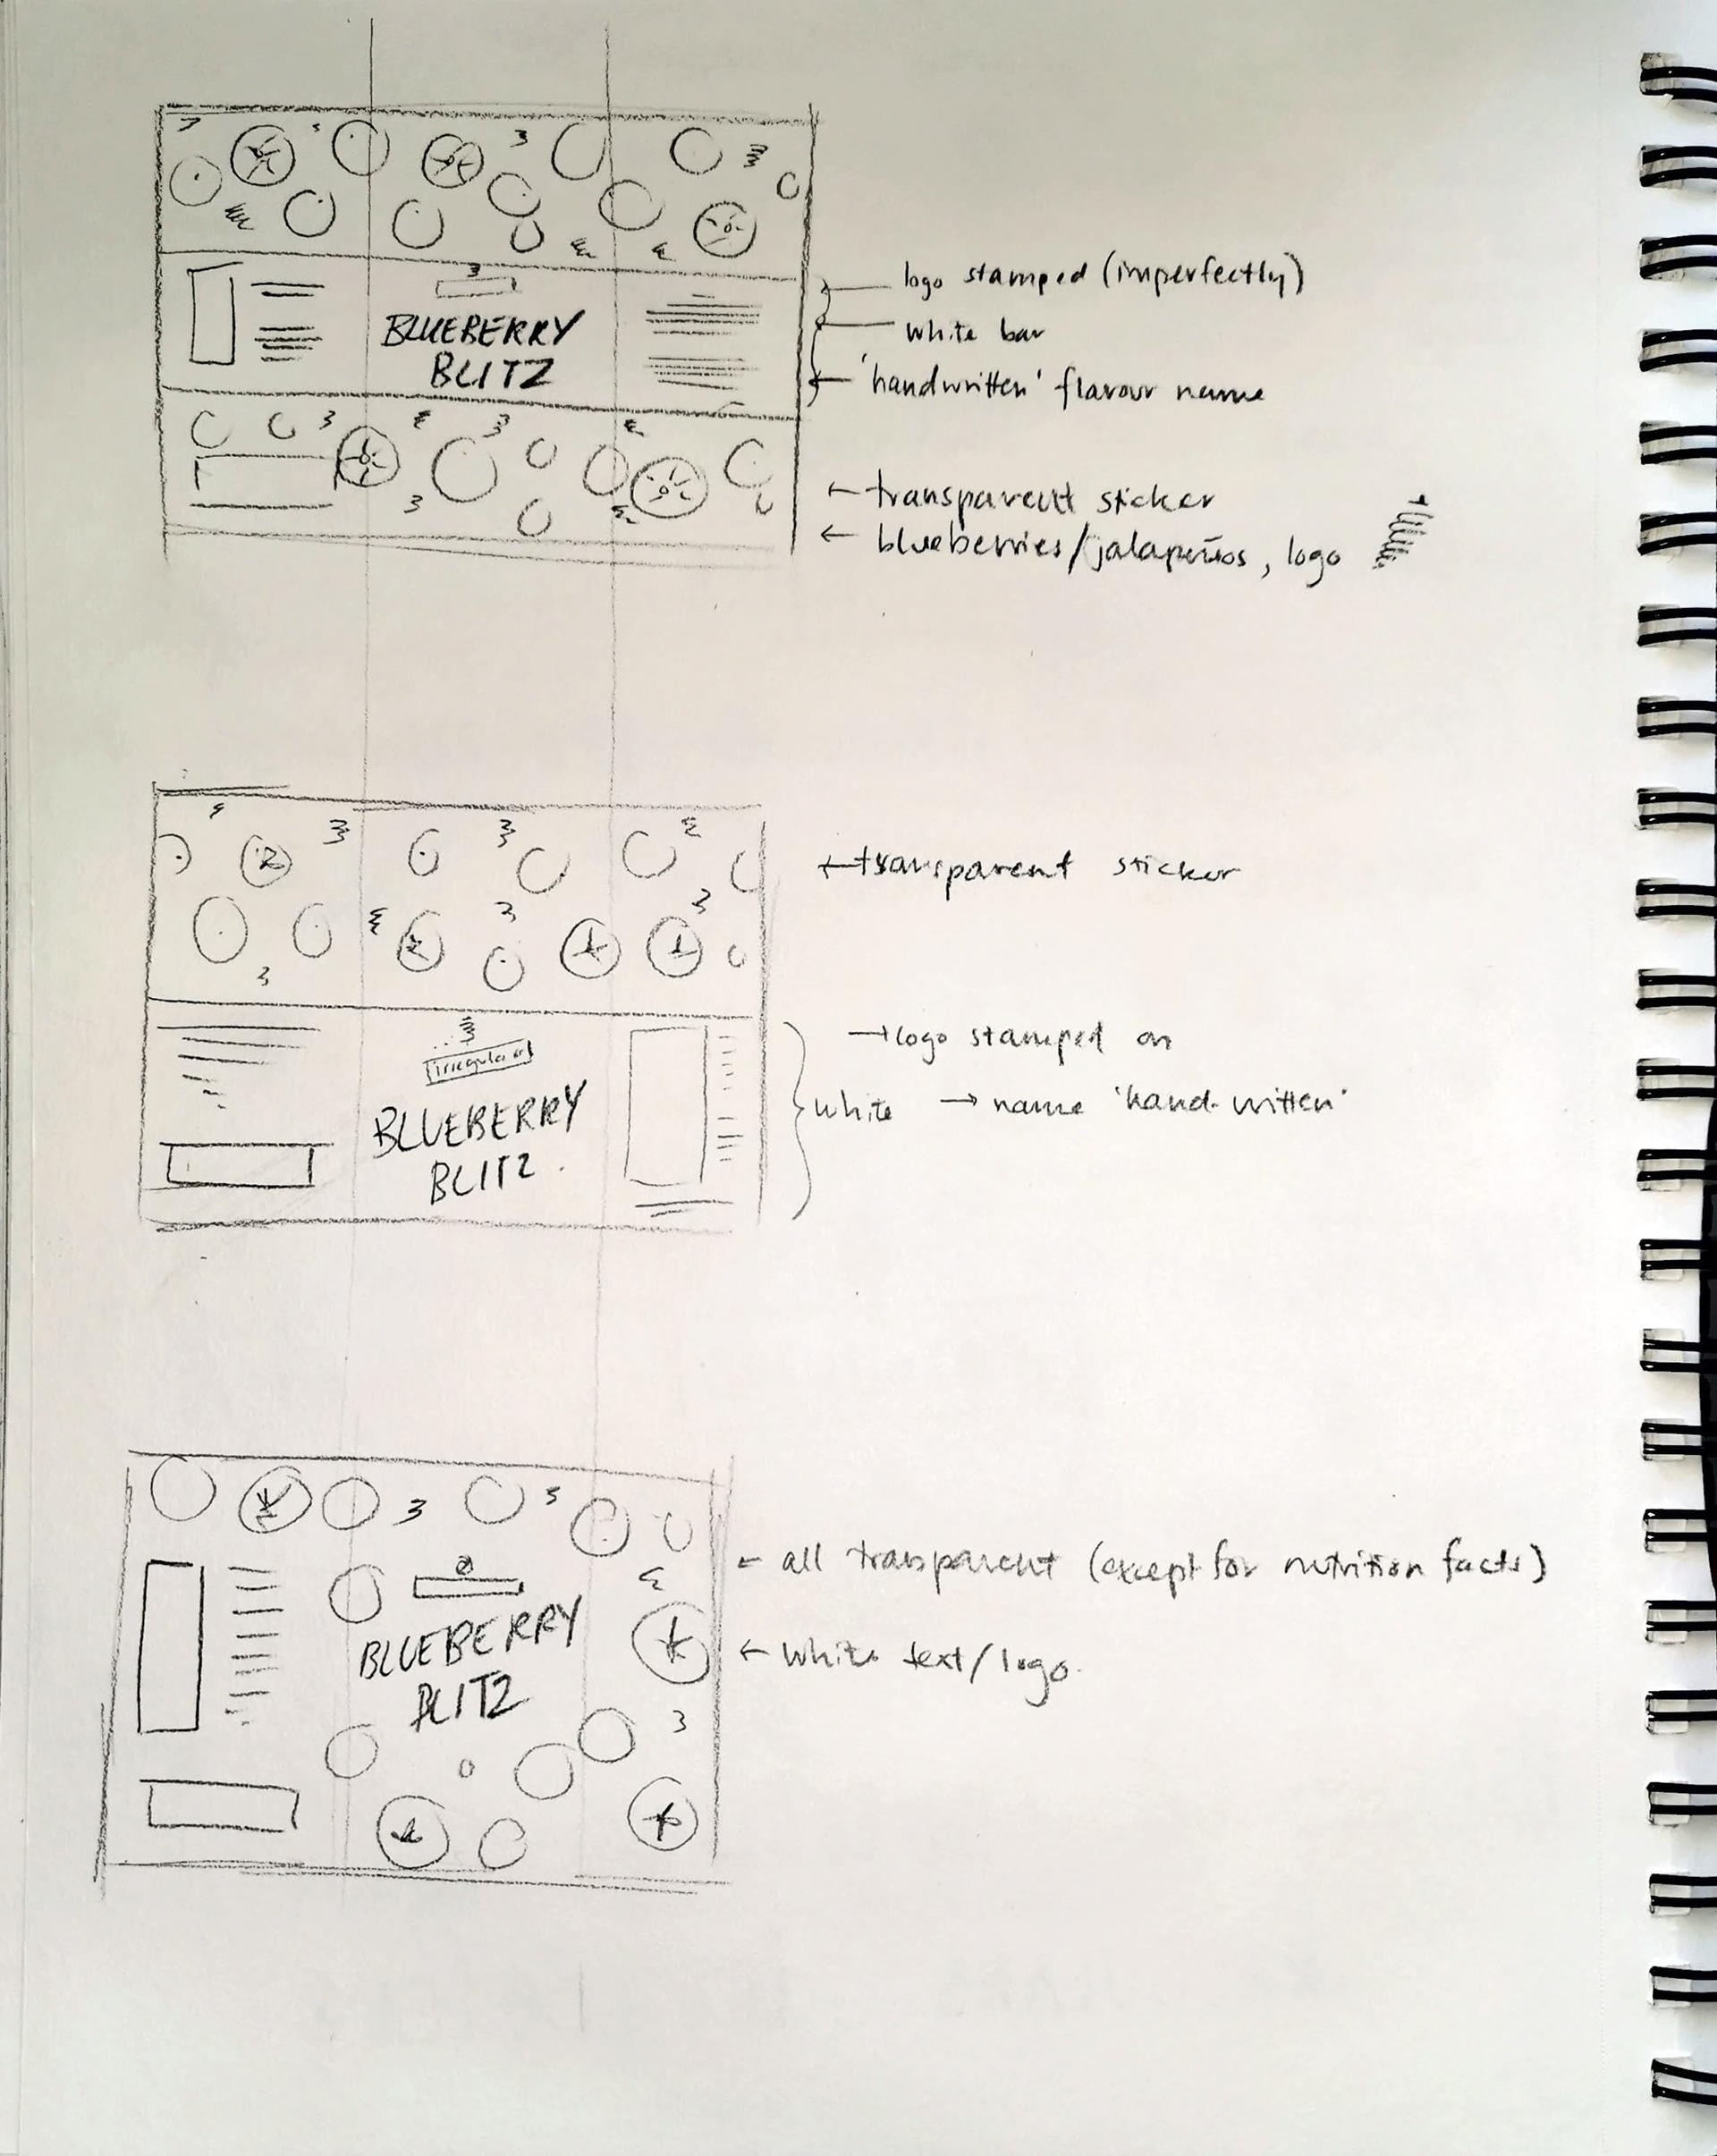 BLUEBERRY
BLITZ
logo stamped (imperfectly)
white bar
'handwritten' flavour name
transparent sticker
blueberries/jalapeños, logo
transparent sticker
irregular
BLUEBERRY
BLITZ
logo stamped on
white → name 'hand-written'
BLUEBERRY
BLITZ
all transparent (except for nutrition facts)
white text/logo